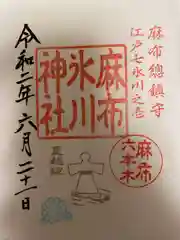 麻布總鎮守
江戸七氷川之壱
麻布
氷川
神社
夏越祓
麻布
六本木
令和二年六月二十一日